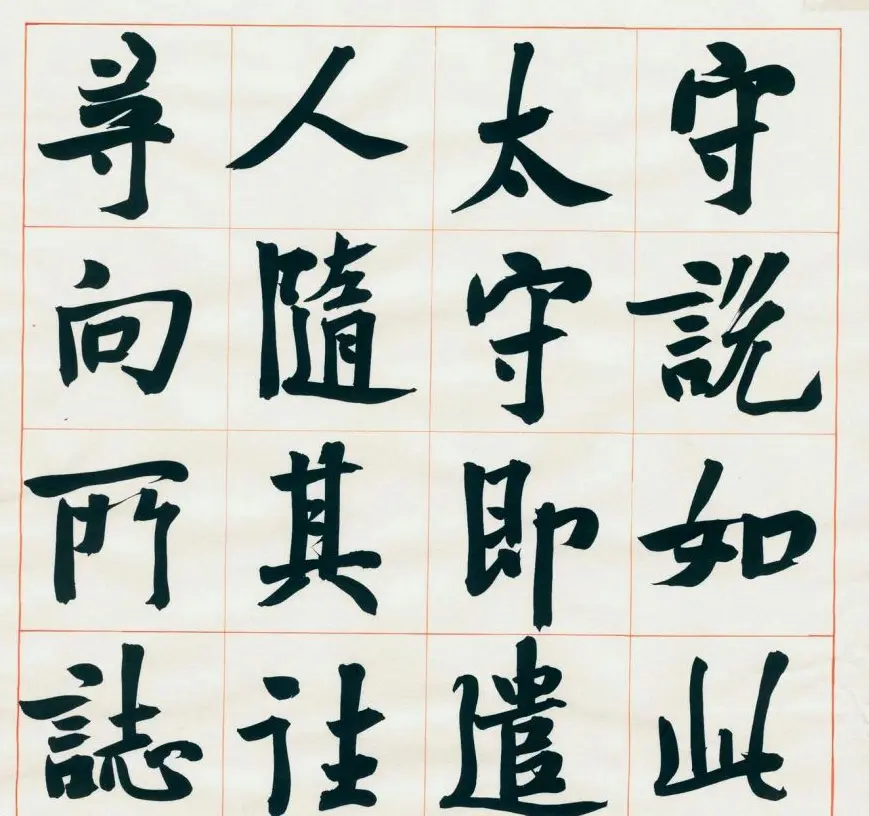 守說如此
太守即遣
人隨其往
尋向所誌